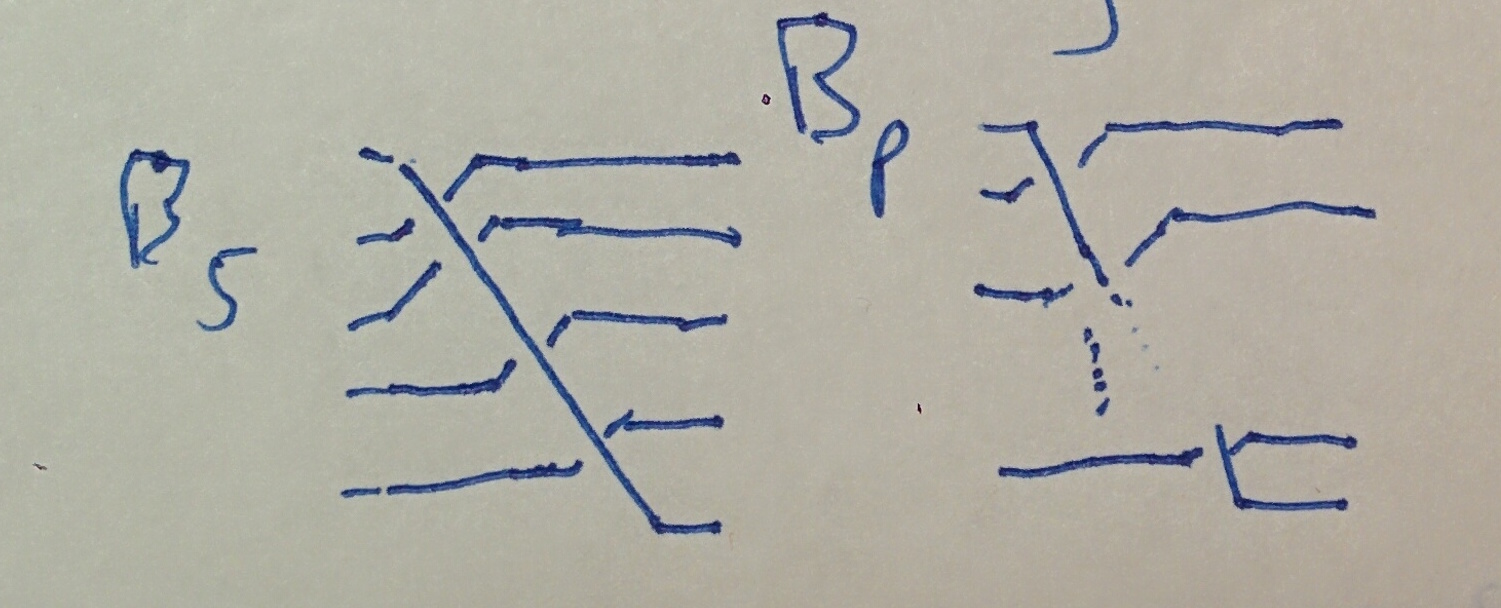 B_5
B_p